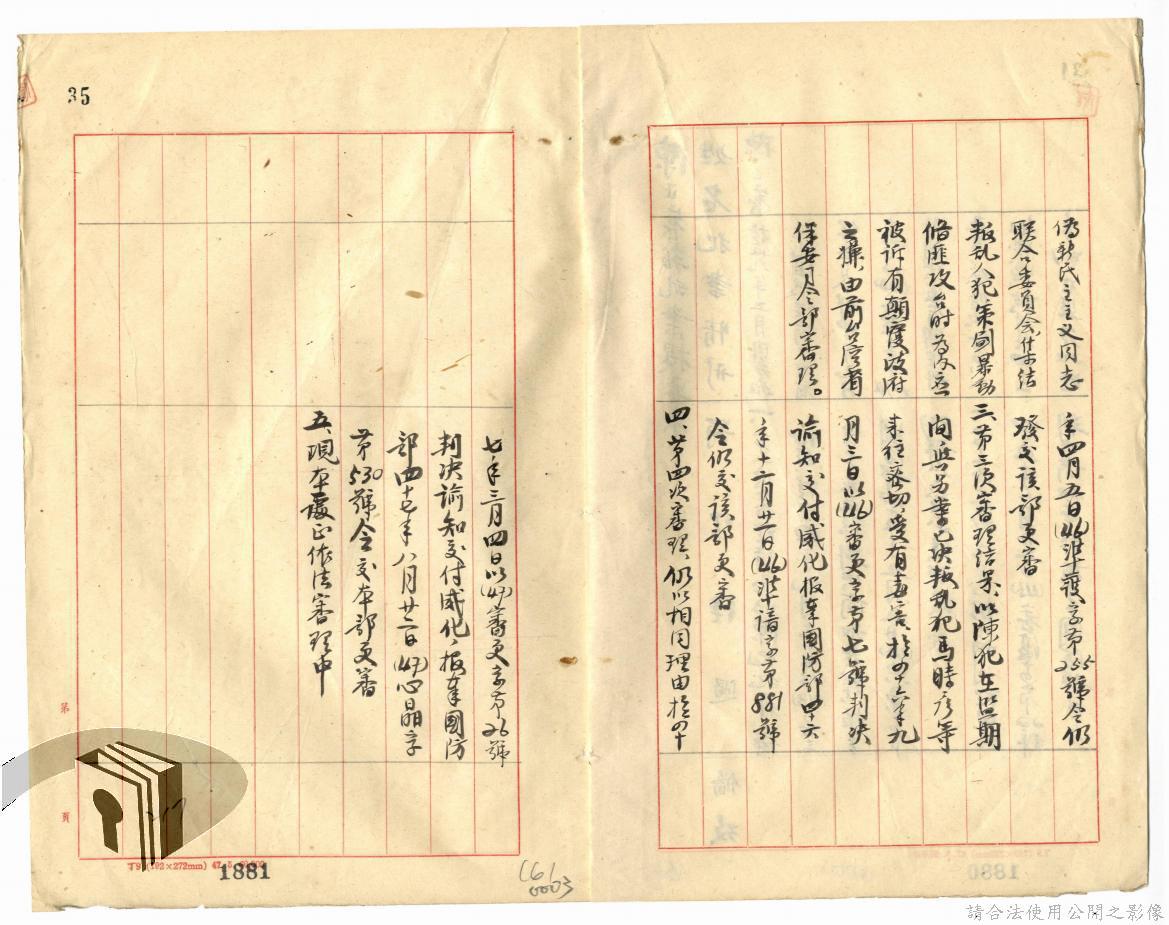 偽新民主主义同志
联合委員会集结
叛乱人犯策劃暴動
俻匪攻台时為内应
被诉有顛覆政府
之嫌,由前台湾省
保安司令部審理。
年四月五日(46)準護字第255號令仍
發交該部更審
三、第三次審理结果,以陳犯在监期
间与另案已决叛乱犯馬時彦等
来往密切,受有毒害,於四十六年九
月三日以(46)審更字第七號判决
諭知交付感化报奉國防部四十六
年十二月廿一日(46)準諳字第881號
令仍交該部更審
四、第四次審理,仍以相同理由於四十
七年三月四日以(47)審更字第26號
判决諭知交付感化,报奉國防
部四十七年八月廿二日(47)心晶字
第530號令交本部更審
五、現本處正依法審理中
35
第
頁
1881
161
0003
請合法使用公開之影像